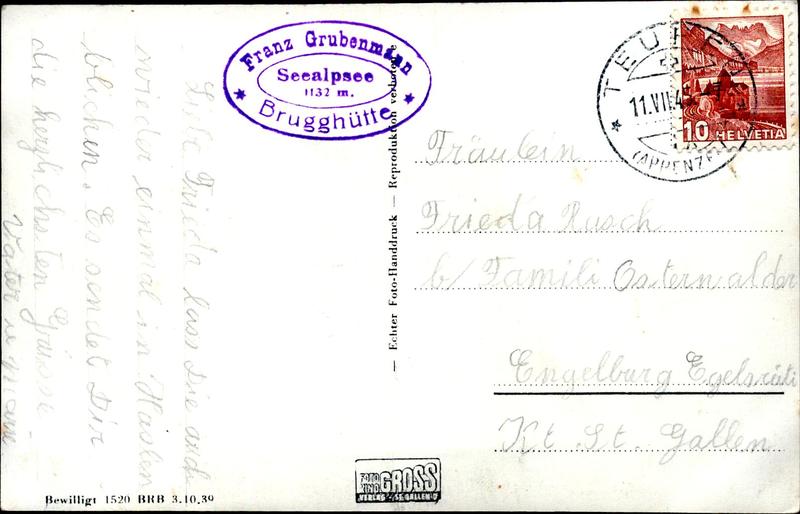 Liebe Frieda lass Die auch
wider einmal in Haslen
blicken. Es sendet Dir
die herzlichsten Grüsse
Vater u Marie
Franz Grubenmann
Seealpsee
1132 m.
Brugghütte
— Echter Foto-Handdruck — Reproduktion verboten
TEUFEN
11.VII.4
(APPENZELL)
10 HELVETIA
Fräulein
Frieda Rusch
b/ Famili Osternwalder
Engelburg Egelsrüti
Kt. St. Gallen
FOTO KINO GROSS
VERLAG ST. GALLEN
Bewilligt 1520 BRB 3.10.39